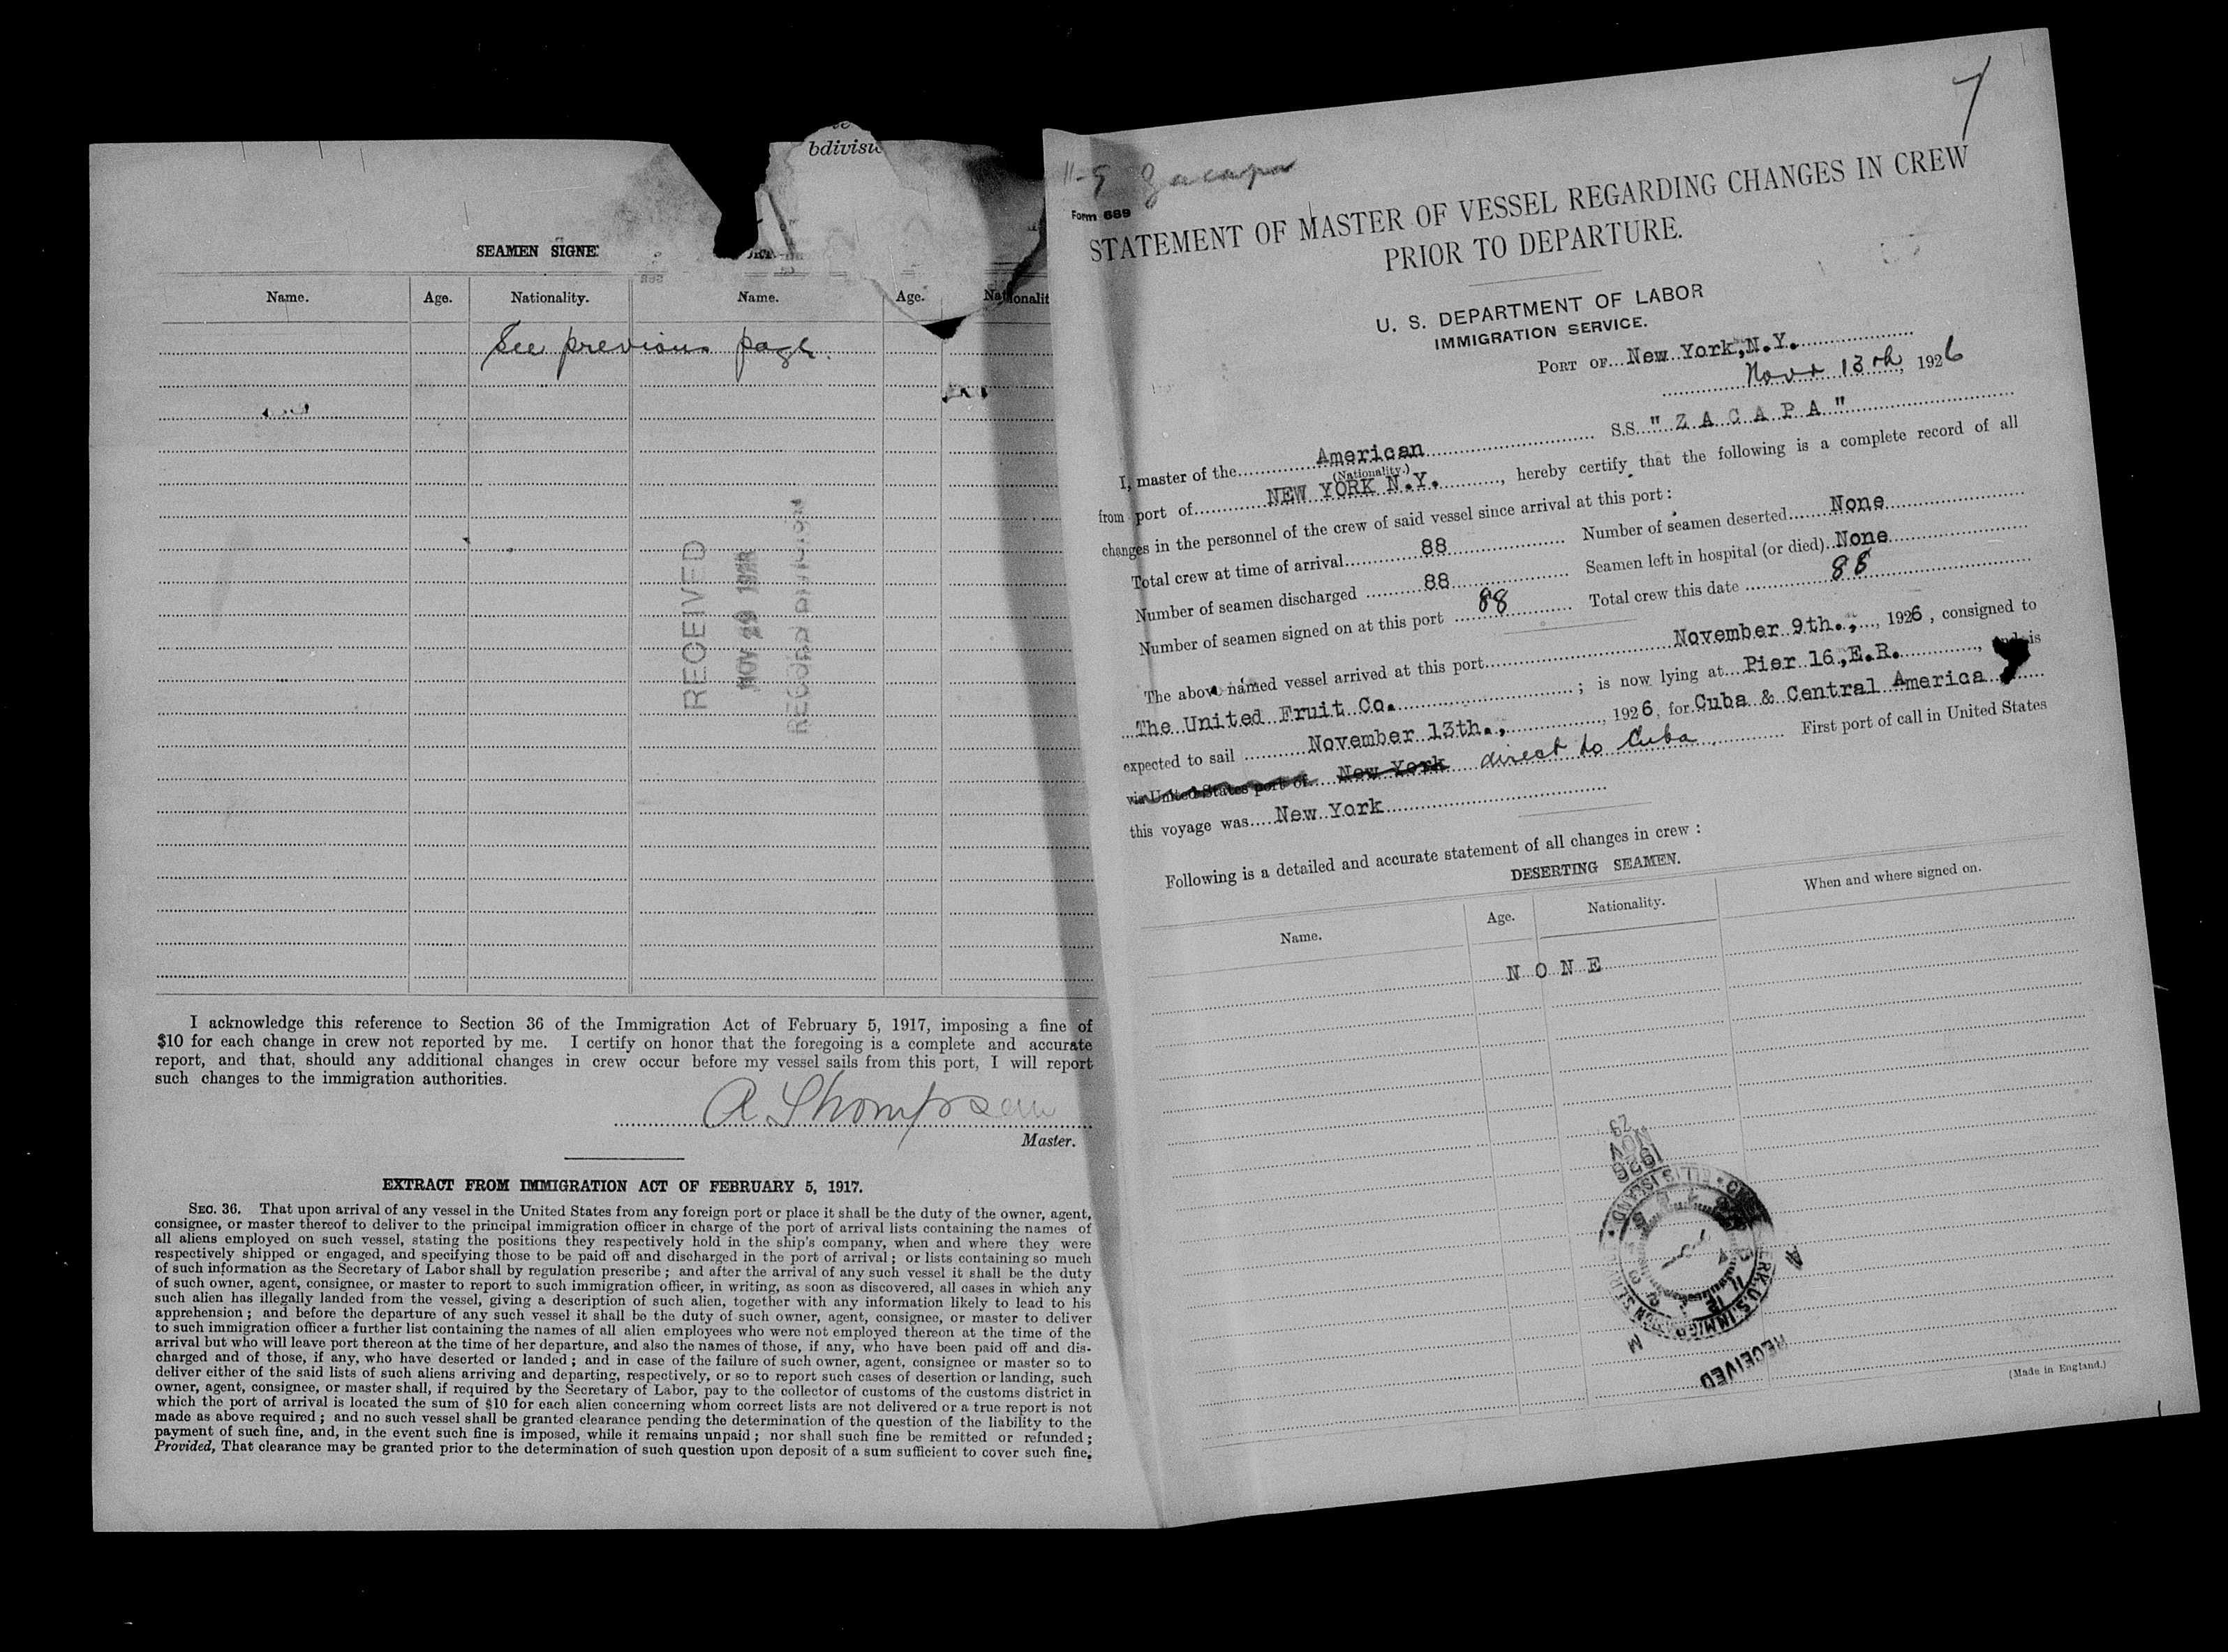 bdivisi
SEAMEN SIGNE
Name. Age. Nationality. Name. Age. Nationalit
See previous page.
RECEIVED
NOV 29 1926
RECORD DIVISION
I acknowledge this reference to Section 36 of the Immigration Act of February 5, 1917, imposing a fine of
$10 for each change in crew not reported by me. I certify on honor that the foregoing is a complete and accurate
report, and that, should any additional changes in crew occur before my vessel sails from this port, I will report
such changes to the immigration authorities.
A Thompson
Master.
EXTRACT FROM IMMIGRATION ACT OF FEBRUARY 5, 1917.
SEC. 36. That upon arrival of any vessel in the United States from any foreign port or place it shall be the duty of the owner, agent,
consignee, or master thereof to deliver to the principal immigration officer in charge of the port of arrival lists containing the names of
all aliens employed on such vessel, stating the positions they respectively hold in the ship's company, when and where they were
respectively shipped or engaged, and specifying those to be paid off and discharged in the port of arrival; or lists containing so much
of such information as the Secretary of Labor shall by regulation prescribe; and after the arrival of any such vessel it shall be the duty
of such owner, agent, consignee, or master to report to such immigration officer, in writing, as soon as discovered, all cases in which any
such alien has illegally landed from the vessel, giving a description of such alien, together with any information likely to lead to his
apprehension; and before the departure of any such vessel it shall be the duty of such owner, agent, consignee, or master to deliver
to such immigration officer a further list containing the names of all alien employees who were not employed thereon at the time of the
arrival but who will leave port thereon at the time of her departure, and also the names of those, if any, who have been paid off and dis-
charged and of those, if any, who have deserted or landed; and in case of the failure of such owner, agent, consignee or master so to
deliver either of the said lists of such aliens arriving and departing, respectively, or so to report such cases of desertion or landing, such
owner, agent, consignee, or master shall, if required by the Secretary of Labor, pay to the collector of customs of the customs district in
which the port of arrival is located the sum of $10 for each alien concerning whom correct lists are not delivered or a true report is not
made as above required; and no such vessel shall be granted clearance pending the determination of the question of the liability to the
payment of such fine, and, in the event such fine is imposed, while it remains unpaid; nor shall such fine be remitted or refunded;
Provided, That clearance may be granted prior to the determination of such question upon deposit of a sum sufficient to cover such fine.
7
11-9 Zacapa
Form 689
STATEMENT OF MASTER OF VESSEL REGARDING CHANGES IN CREW
PRIOR TO DEPARTURE.
U. S. DEPARTMENT OF LABOR
IMMIGRATION SERVICE.
PORT OF New York, N.Y.
Novr 13th, 1926
I, master of the American S.S. " Z A C A P A "
(Nationality.)
from port of NEW YORK N.Y., hereby certify that the following is a complete record of all
changes in the personnel of the crew of said vessel since arrival at this port:
Total crew at time of arrival 88 Number of seamen deserted None
Number of seamen discharged 88 Seamen left in hospital (or died) None
Number of seamen signed on at this port 88 Total crew this date 88
The above named vessel arrived at this port November 9th., 1926, consigned to
The United Fruit Co. ; is now lying at Pier 16, E.R., and is
expected to sail November 13th., 1926, for Cuba & Central America
via United States port of New York direct to Cuba. First port of call in United States
this voyage was New York
Following is a detailed and accurate statement of all changes in crew:
DESERTING SEAMEN.
Name. Age. Nationality. When and where signed on.
N O N E
1926
NOV
29
ELLIS ISLAND
U.S. IMMIG
A
M
RECEIVED
(Made in England.)